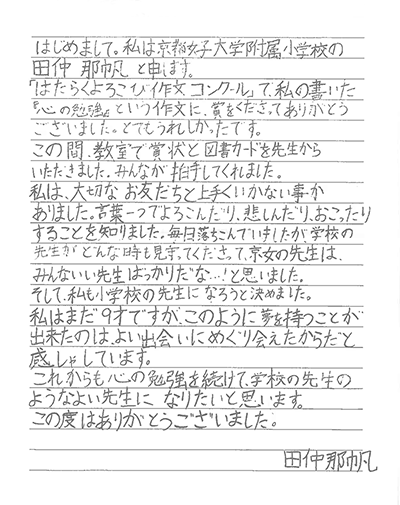 はじめまして。私は京都女子大学附属小学校の
田仲 那帆 と申します。
「はたらくよろこび作文コンクール」で、私の書いた
『心の勉強』という作文に、賞をくださってありがとう
ございました。とてもうれしかったです。
この間、教室で賞状と図書カードを先生から
いただきました。みんなが拍手してくれました。
私は、大切なお友だちと上手くいかない事が
ありました。言葉一つでよろこんだり、悲しんだり、おこったり
することを知りました。毎日落ちこんでいましたが、学校の
先生がどんな時も見守ってくださって、京女の先生は、
みんないい先生ばっかりだな…!と思いました。
そして、私も小学校の先生になろうと決めました。
私はまだ9才ですが、このように夢を持つことが
出来たのは、よい出会いにめぐり会えたからだと
感しゃしています。
これからも心の勉強を続けて、学校の先生の
ようなよい先生になりたいと思います。
この度はありがとうございました。
田仲那帆